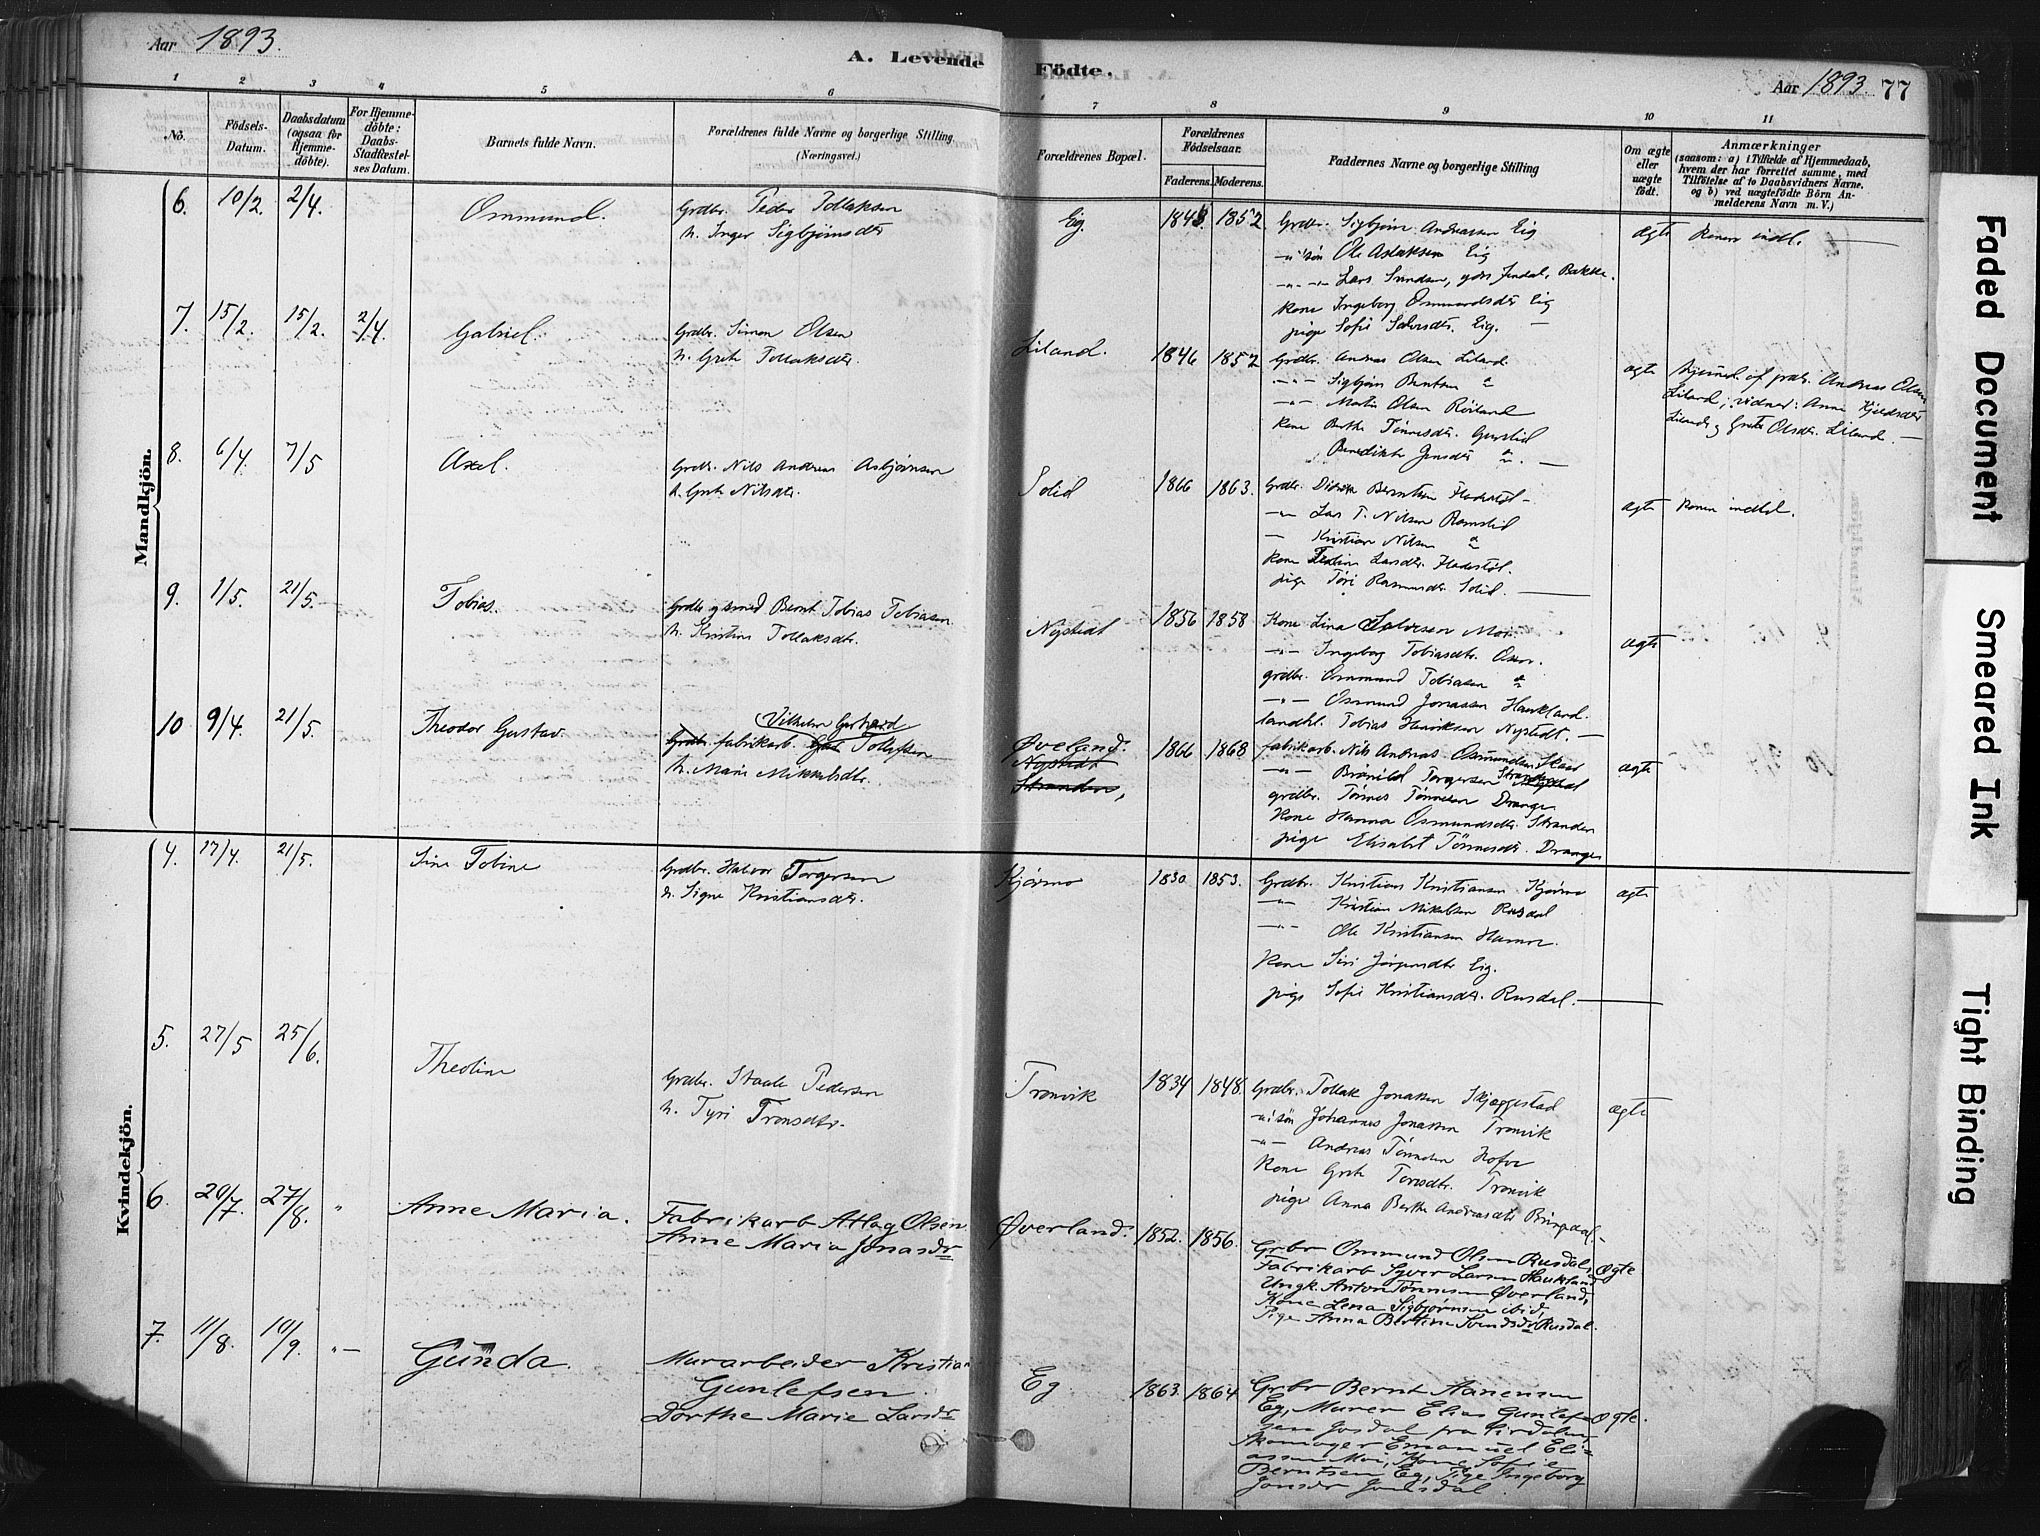 Aar 1893.
A. Levende Födte.
Aar 1893. 77
1 2 3 4 5 6 7 8 9 10 11
No.
Födsels-Datum.
Daabsdatum (ogsaa for Hjemme-döbte).
For Hjemme-döbte: Daabs-Stadfæstel-ses Datum.
Barnets fulde Navn.
Forældrenes fulde Navne og borgerlige Stilling. (Næringsvei.)
Forældrenes Bopæl.
Forældrenes Födselsaar.
Faderens. Moderens.
Faddernes Navne og borgerlige Stilling
Om ægte eller uægte födt.
Anmærkninger
(saasom: a) i Tilfælde af Hjemmedaab, hvem der har forrettet samme, med Tilföielse af to Daabsvidners Navne, og b) ved uægtefödte Börn An-melderens Navn m. V.)
Mandkjön.
6. 10/2. 2/4. Ommund. Grdbr. Peder Tollaksen
h. Inger Sigbjørnsdtr
Eig. 1843. 1852
Grdbr. Sigbjørn Andreassen Eig
Ole Aslaksen Eig
Lars Svendsen, Bakke.
Kone Ingeborg Osmundsdtr Eig
pige Sofie Eig.
ægte Konen indl.
7. 15/2. 15/2. 2/4. Gabriel. Grdbr. Simon Olsen
h. Grete Tollaksdtr.
Liland. 1846 1852
Grdbr. Andreas Olsen Liland
Sigbjørn Berntsen
Martin Olsen Røiland
Kone Berthe Tønnesdtr. Gurstid
Benedikte Jensdtr
ægte hjemmed. af grdr. Andreas Olsen
Liland; vidner: Anne Kjeldsdtr
Liland og Grete Olsdtr. Liland.
8. 6/4. 7/5 Axel. Grdbr. Nils Andreas Asbjørnsen
h. Grete Nilsdtr.
Solid 1866 1863.
Grdbr. Didrik Berntsen
Lars T. Nilsen Ramslid
Kristian Nilsen
Kone Larsdtr.
pige Tøri Rasmusdtr Solid.
ægte Konen indl.
9. 1/5. 21/5. Tobias. Grdbr og smed Bernt Tobias Tobiasen
h. Kristine Tollaksdtr.
Nystedt 1856 1858
Kone Lina Salvesen Moi.
Ingeborg Tobiasdtr. Osen.
grdbr. Ommund Tobiasen
Osmund Jonassen Haukland.
landhl. Tobias Henriksen Nystedt.
ægte
10 9/4. 21/5. Theodor Gustav. Vilhelm Gerhard
Grdbr. fabrikarb. Tollefsen
h. Marie Mikkelsdtr.
Øveland.
Nystedt
Stranden,
1866 1868
fabrikarb. Nils Andreas Osmundsen Skaar
Brønild Torgersen Stranden
grdbr. Tønnes Tønnesen Drange
Kone Hanna Osmundsdtr. Stranden
pige Elisabet Tønnesdtr. Drange
ægte
Kvindekjön.
4. 17/4. 21/5. Sine Tobine Grdbr. Halvor Torgersen
h. Signe Kristiansdtr.
Kjørmo 1830 1853.
Grdbr. Kristian Kristiansen Kjørmo
Kristian Mikalsen Rusdal
Ole Kristiansen Hamre.
Kone Siri Eig.
pige Sofie Kristiansdtr. Rusdal.
ægte
5. 27/5 25/6. Theoline Grdbr. Staale Pedersen
h. Tyri Tronsdtr.
Tronvik 1834 1848.
Grdbr. Tollak Jonassen Skjæggestad
Johannes Jonassen Tronvik
Andreas Tønnesen
Kone Grete Tronvik
pige Anna Berthe Andreasdtr
ægte
6. 20/7. 27/8. " Anne Maria. Fabrikarb Atlag Olsen
Anne Maria Jonasdr
Øverland. 1852. 1856.
Grbr Ommund Olsen Rusdal,
Fabrikarb Syver Larsen Haukland
Ungk. Anton Tønnesen Øverland,
Kone Lena Sigbjørnsen ibid,
Pige Anna Bertine Svendsdr Rusdal.
ægte
7. 11/8. 10/9. " Gunda. Murarbeider Kristian
Gunlefsen
Dorthe Marie Larsdr
Eg 1863. 1864
Grbr Bernt Aanensen
Eg, Murer Elias Gunlef-
sen Josdal fra Sirdalen,
Skomager Emanuel Eli-
assen Moi, Kone Sofie
Berntsen Eg, Pige Ingeborg
Jonsdr
ægte.
Faded Document
Smeared Ink
Tight Binding